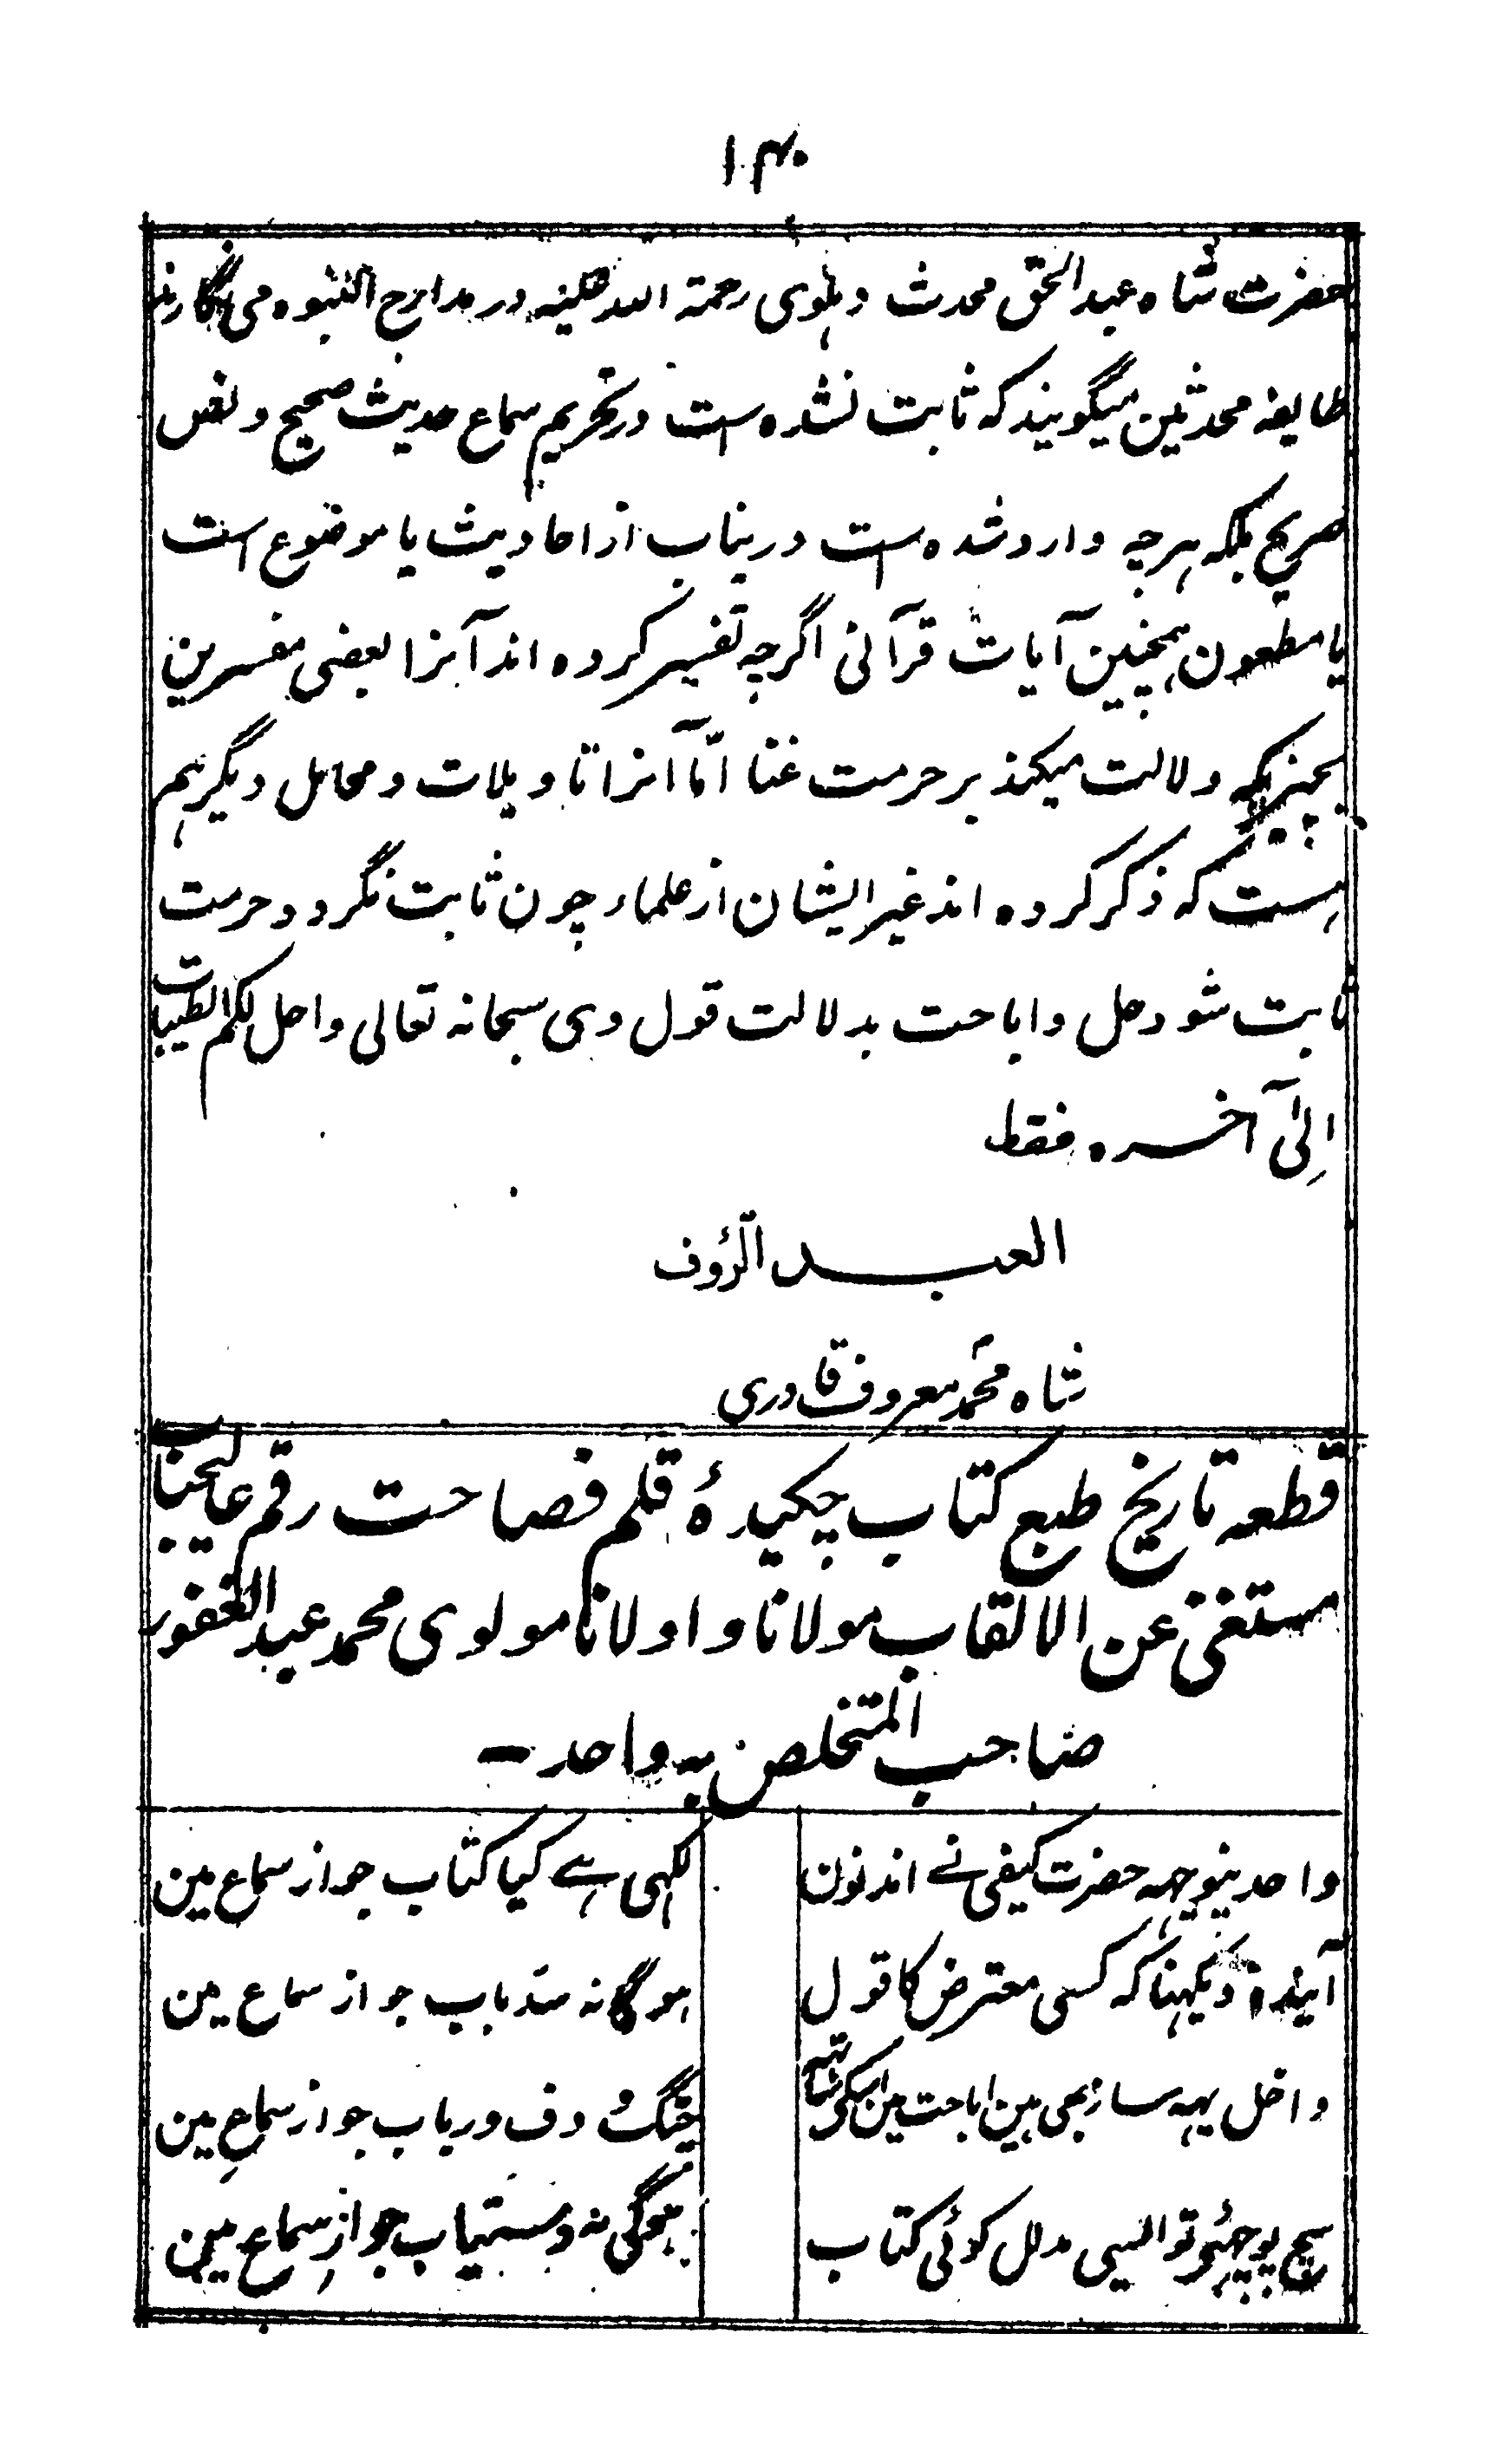 ۱۴۰
حضرت شاہ عبدالحق محدث دہلوی رحمۃ اللہ علیہ در مدارج النبوہ می نگارند
طایفہ محدثین میگویند کہ ثابت نشدہ است در تحریم سماع حدیث صحیح و نص
صریح بلکہ ہرچہ وارد شدہ است درینباب از احادیث یا موضوع است
یا مطعون ہمچنین آیات قرآنی اگرچہ تفسیر کردہ اند آنرا بعضی مفسرین
بچیزیکہ دلالت میکند بر حرمت غنا امّا آنرا تاویلات و محامل دیگر ہم
ہست کہ ذکر کردہ اند غیر ایشان از علماء چون ثابت نگردد حرمت
ثابت شود حل و اباحت بدلالت قول وی سبحانہ تعالی واحل لکم الطیبات
اِلیٰ آخرہ فقط
العبد الرؤف
شاہ محمد معروف قادری
قطعہ تاریخ طبع کتاب چکیدۂ قلم فصاحت رقم عالیجناب
مستغنی عن الالقاب مولانا و اولانا مولوی محمد عبدالغفور
صاحب المتخلص بہ واحد –
واحد بنوجہہ حضرت کیفی نے اندنون لکہی ہے کیا کتاب جواز سماع مین
آیندہ دیکہنا کہ کسی معترض کا قول ہوگا نہ سدباب جواز سماع مین
داخل یہہ ساز بھی ہین اباحت مین اسکی ساتہہ چنگ و دف و رباب جواز سماعِ مین
سچ پوچہئے تو ایسی مدلل کوئی کتاب ہوگی نہ دستیاب جوازِ سماع مین